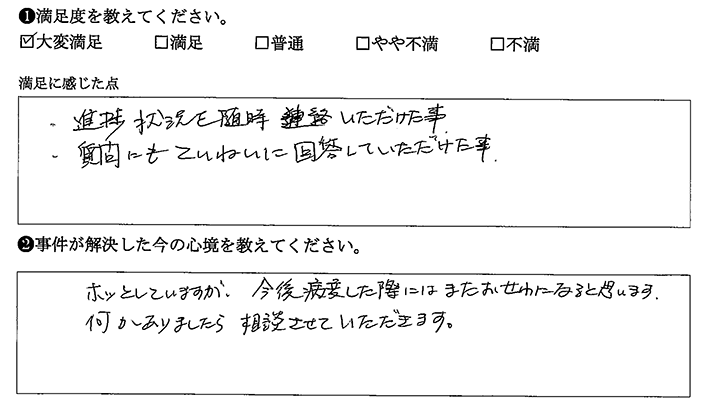 ❶満足度を教えてください。
☑大変満足 □満足 □普通 □やや不満 □不満
満足に感じた点
・進捗状況を随時連絡いただけた事
・質問にもていねいに回答していただけた事.
❷事件が解決した今の心境を教えてください。
ホッとしていますが、今後病変した際にはまたおせわになると思います.
何かありましたら相談させていただきます。